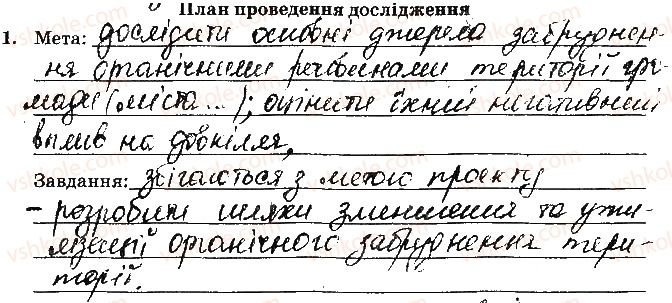 План проведення дослідження
1. Мета: дослідити основні джерела забруднен-
ня органічними речовинами території гро-
мади (міста...); оцінити їхній негативний
вплив на довкілля,
Завдання: збігається з метою проекту
- розробити шляхи зменшення та ути-
лізації органічного забруднення тери-
торії.